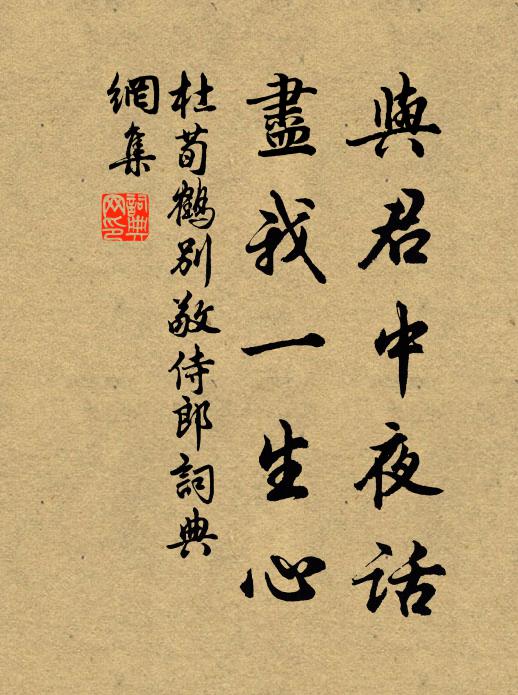 與君中夜話
盡我一生心
杜荀鶴別敬侍郎詞典
網集
詞典
网印